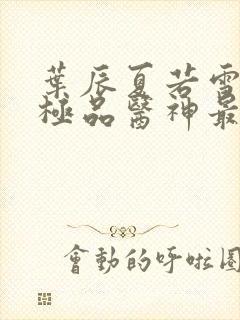 葉辰夏若雪
極品醫神最
會動的呼啦圈